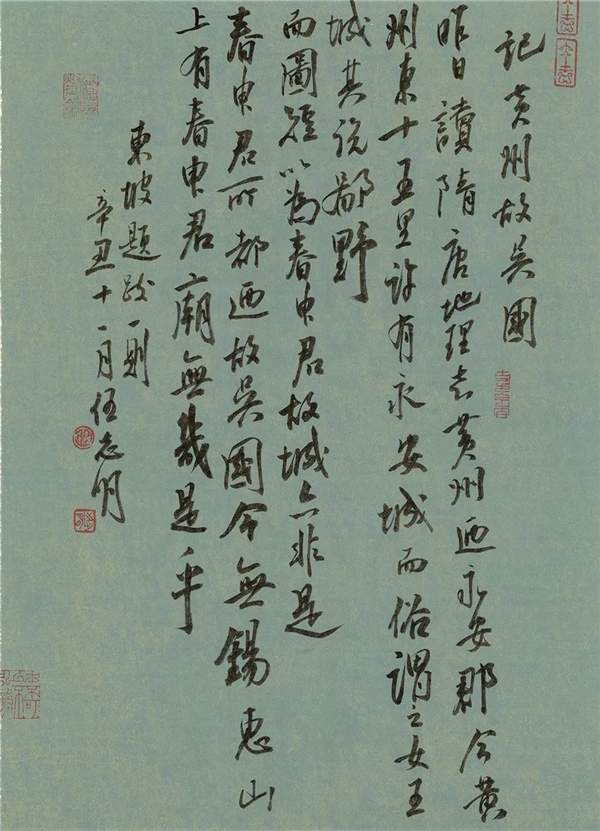 記黄州故吳國
昨日讀隋唐地理志黄州迺永安郡今黄
州東十五里許有永安城而俗謂之女王
城其說鄙野
而圖經以為春申君故城亦非是
春申君所都迺故吳國今無錫惠山
上有春申君廟無幾是乎
東坡題跋一則
辛丑十一月伍志明